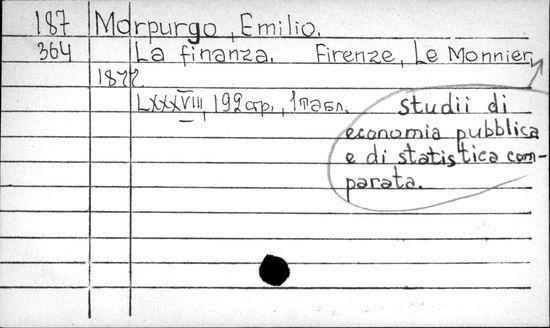 187 Morpurgo, Emilio.
364 La finanza. Firenze, Le Monnier,
1877
LXXXVIII, 192 стр., 1 табл.
studii di
economia pubblica
e di statistica com-
parata.